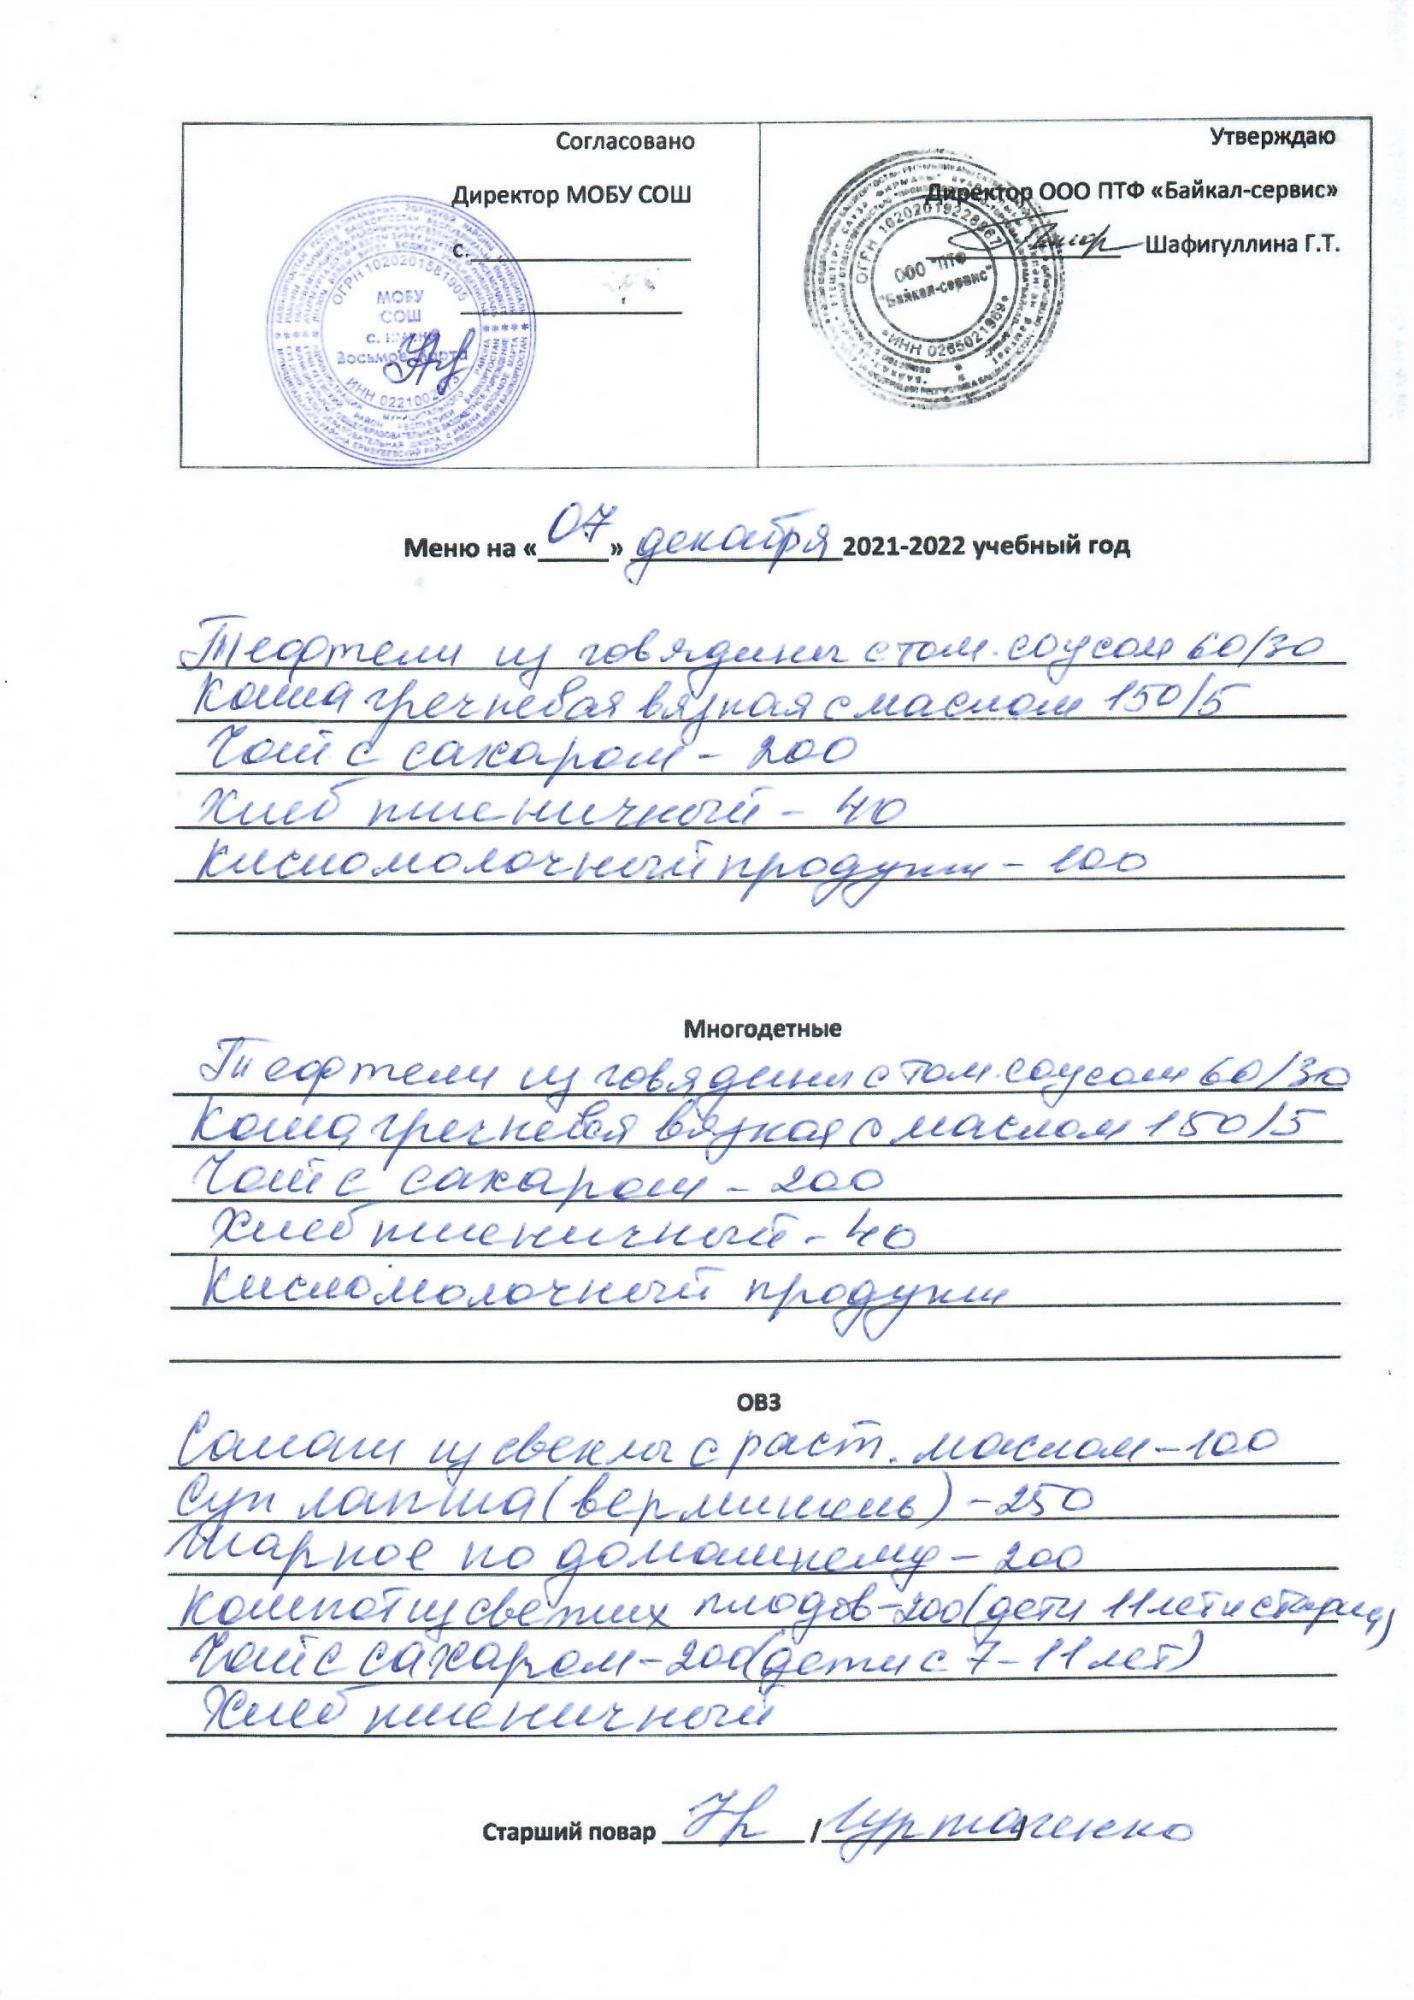 Согласовано
Директор МОБУ СОШ
с.
ОГРН 1020201581905
МОБУ
СОШ
с. имени
Восьмое Марта
Утверждаю
Директор ООО ПТФ «Байкал-сервис»
Шафигуллина Г.Т.
ОГРН 1020201922896
ООО "ПТФ
"Байкал-сервис"
Меню на « 07 » декабря 2021-2022 учебный год
Тефтели из говядины с том. соусом 60/30
Каша гречневая вязкая с маслом 150/5
Чай с сахаром - 200
Хлеб пшеничный - 40
Кисломолочный продукт - 100
Многодетные
Тефтели из говядины с том. соусом 60/30
Каша гречневая вязкая с маслом 150/5
Чай с сахаром - 200
Хлеб пшеничный - 40
Кисломолочный продукт
ОВЗ
Салат из свеклы с раст. маслом - 100
Суп лапша (вермишель) - 250
Жаркое по домашнему - 200
Компот из свежих плодов - 200 (дети 11 лет и старше)
Чай с сахаром - 200 (дети с 7-11 лет)
Хлеб пшеничный
Старший повар / /